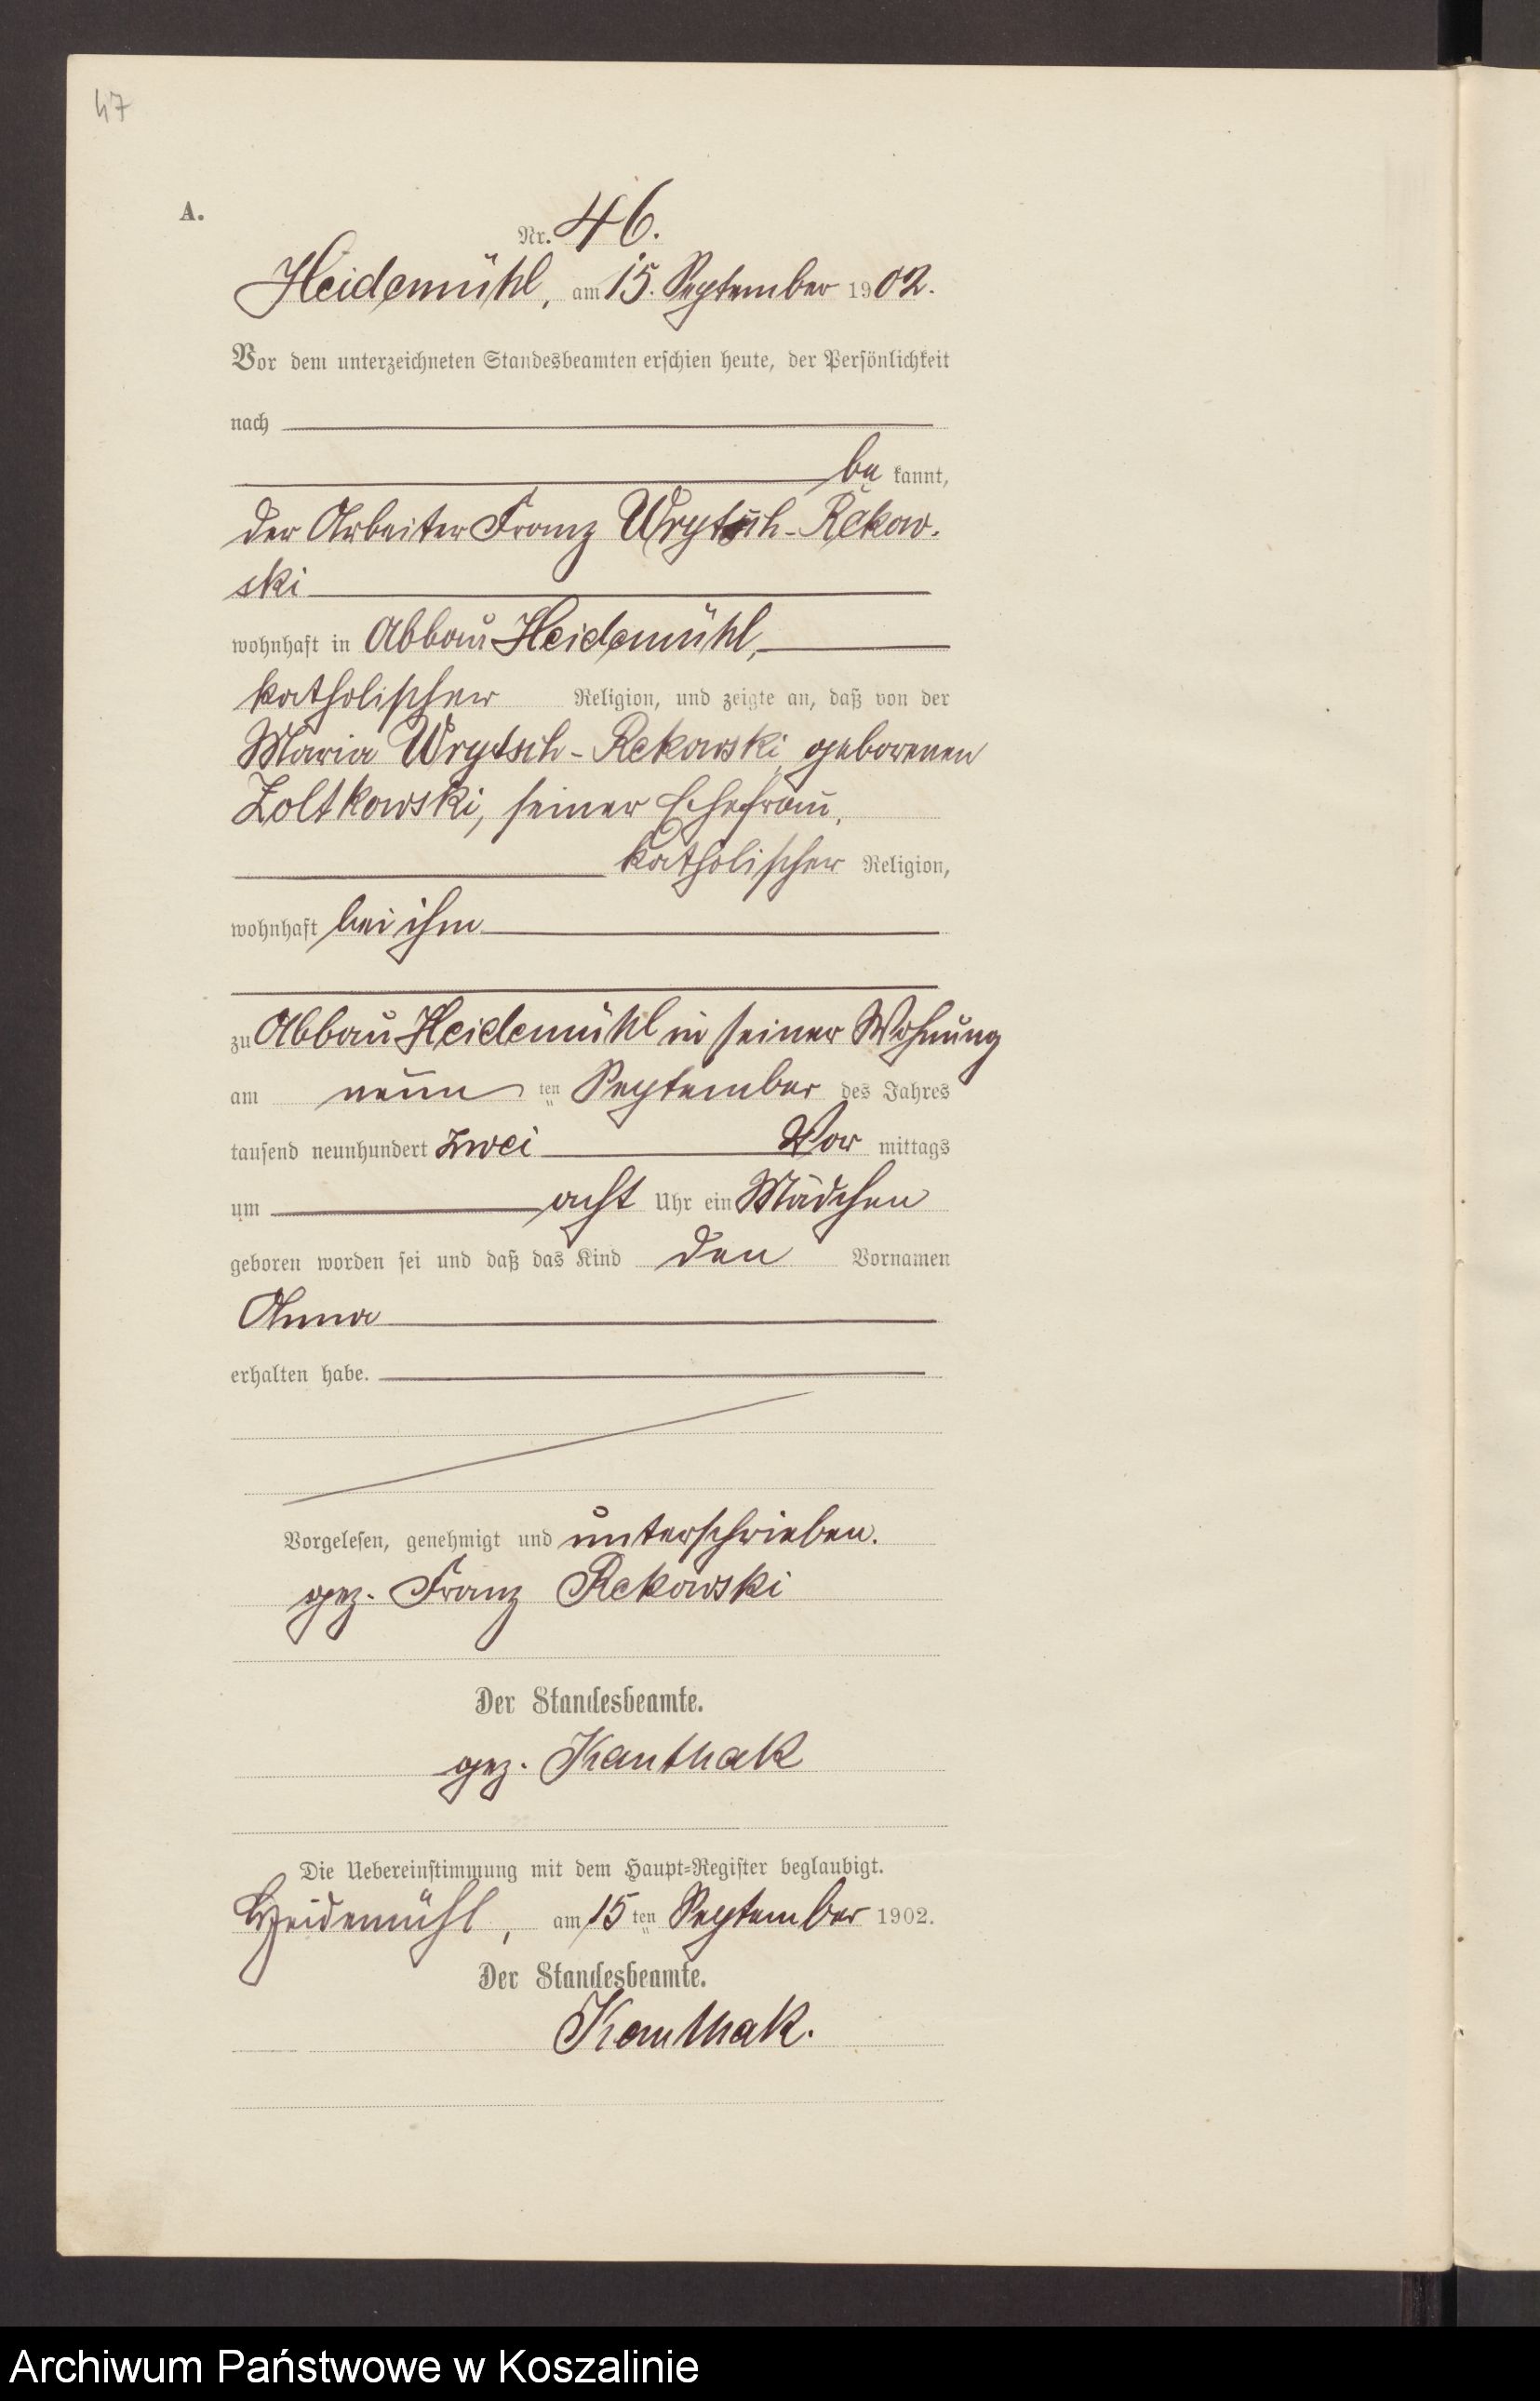 47
A.
Nr. 46.
Heidemühl, am 15. September 1902.
Vor dem unterzeichneten Standesbeamten erschien heute, der Persönlichkeit
nach
be kannt,
der Arbeiter Franz Wrytsch-Rekow-
ski
wohnhaft in Abbau Heidemühl,
katholischer Religion, und zeigte an, daß von der
Maria Wrytsch-Rekowski, geborenen
Zoltkowski, seiner Ehefrau,
katholischer Religion,
wohnhaft bei ihm
zu Abbau Heidemühl in seiner Wohnung
am neun ten September des Jahres
tausend neunhundert zwei Vor mittags
um acht Uhr ein Mädchen
geboren worden sei und daß das Kind den Vornamen
Anna
erhalten habe.
Vorgelesen, genehmigt und unterschrieben.
gez. Franz Rekowski
Der Standesbeamte.
gez. Kanthak
Die Uebereinstimmung mit dem Haupt-Register beglaubigt.
Heidemühl, am 15 ten September 1902.
Der Standesbeamte.
Kanthak.
Archiwum Państwowe w Koszalinie